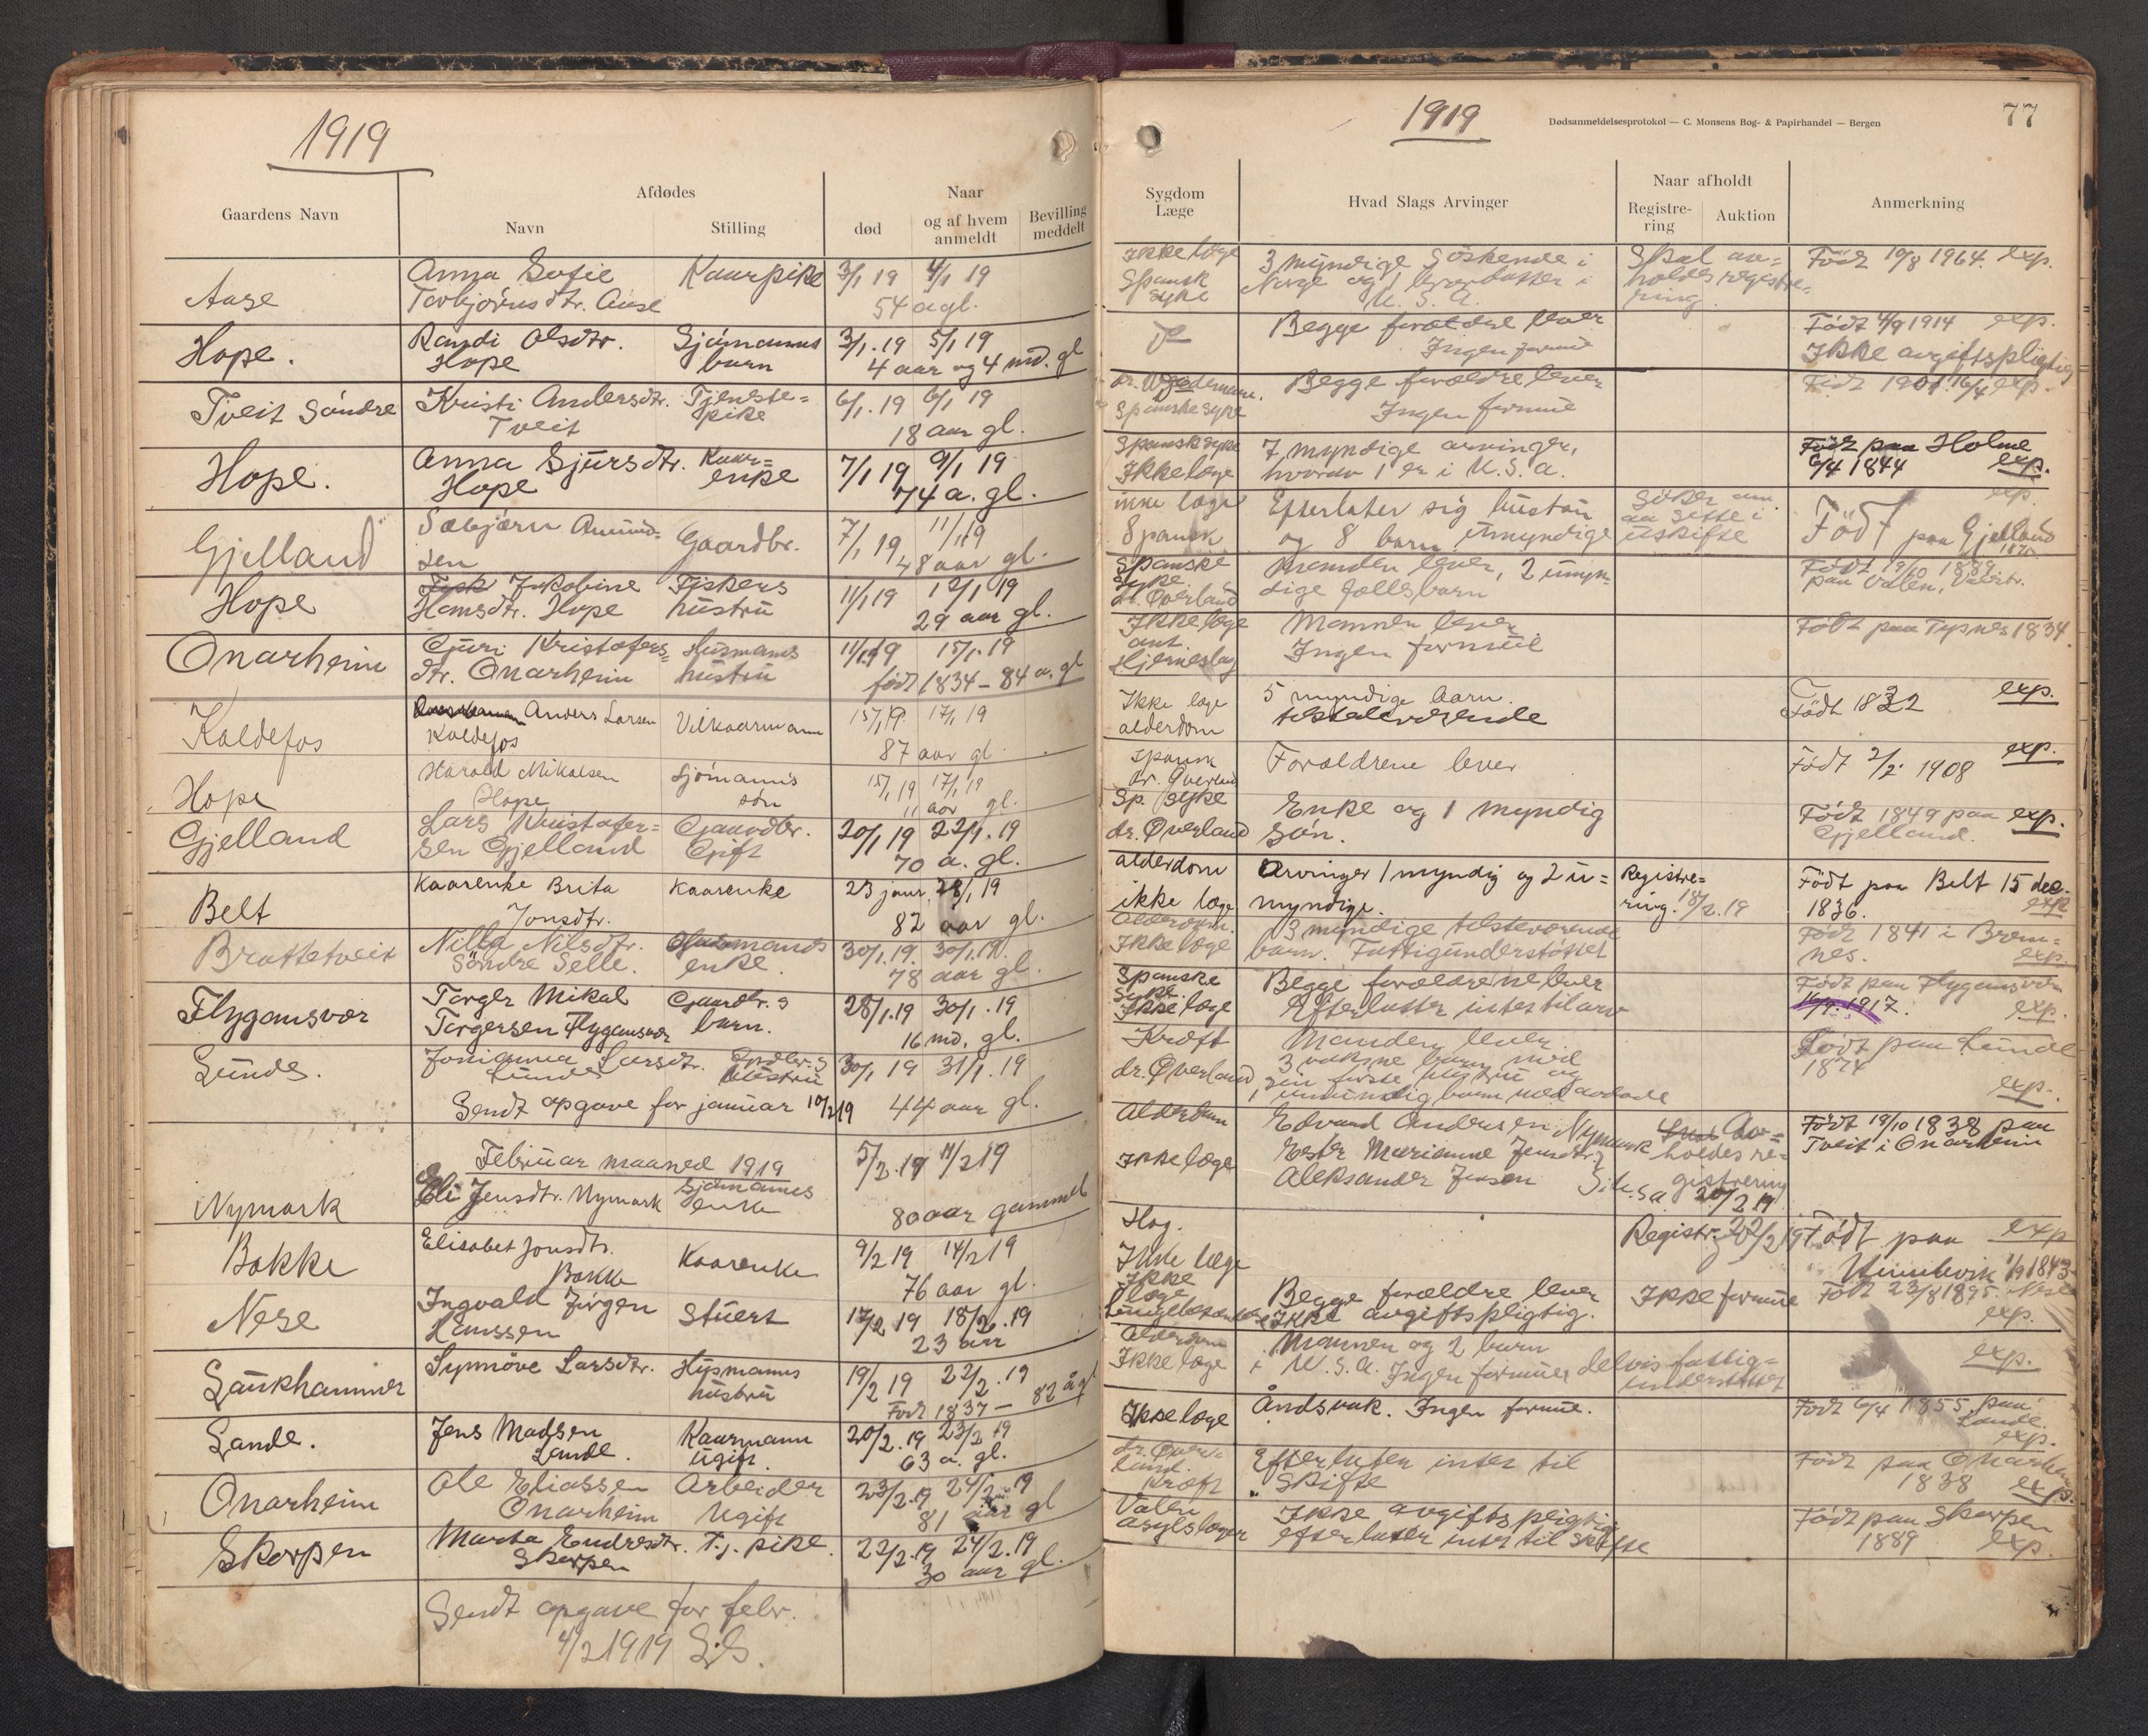 1919
Gaardens Navn
Afdødes
Navn
Stilling
Naar
død
og af hvem
anmeldt
Bevilling
meddelt
Aase
Anna Sofie
Torbjörnsdtr. Aase
Kaarpike
3/1 19 4/1 19
54 a gl.
Hope.
Randi Olsdtr.
Hope
Sjömanns
barn
3/1. 19 5/1 19
4 aar og 4 md. gl
Tveit Söndre
Kristi Andersdtr.
Tveit
Tjenste=
pike
6/1. 19 6/1 19
18 aar gl.
Hope.
Anna Sjursdtr.
Hope
Kaar=
enke
7/1 19 9/1 19
74 a. gl.
Gjelland
Sæbjørn Amund-
sen
Gaardbr.
7/1 19 11/1 19
48 aar gl.
Hope
Jakobine
Hansdtr. Hope
Fiskers
hustru
11/1 19 12/1 19
29 aar gl.
Onarheim
Guri Kristofers=
dtr. Onarheim
Husmanns
hustru
11/1 19 15/1. 19
født 1834 - 84 a. gl
Koldefos
Anders Larsen
Koldefos
Vilkaarmann
15/1 19. 17/1 19
87 aar gl.
Hope
Harald Mikalsen
Hope
Sjömanns
søn
15/1 19 17/1 19
11 aar gl.
Gjelland
Lars Kristofer=
sen Gjelland
Gaardbr.
Gift
20/1 19 22/1. 19
70 a. gl.
Belt
Kaarenke Brita
Jonsdtr.
Kaarenke
23 januar 28/1 19
82 aar gl.
Brattetveit
Nilla Nilsdtr.
Söndre Selle.
Husmands
enke.
30/1. 19. 30/1. 19.
78 aar gl.
Flygansvær
Torger Mikal
Torgersen Flygansvær
Gaardbr.s
barn.
28/1. 19 30/1. 19
16 md. gl.
Lunde.
Jonianna Larsdtr.
Lunde
Grdbr.s
hustru
30/1 19 31/1. 19
Sendt opgave for januar 10/2 19
44 aar gl.
Februar maaned 1919
Nymark
Eli Jensdtr. Nymark
Sjömanns
enke
5/2. 19 11/2 19
80 aar gammel
Bakke
Elisabet Jonsdtr.
Bakke
Kaarenke
9/2 19 14/2 19
76 aar gl.
Nese
Ingvald Jörgen
Hanssen
Stuert
17/2 19 18/2. 19
23 aar
Laukhammer
Synnöve Larsdtr.
Husmanns
hustru
19/2 19 22/2. 19
Født 1837 - 82 å gl
Lande.
Jens Madsen
Lande.
Kaarmann
ugift.
20/2. 19 23/2 19
63 a. gl.
Onarheim
Ole Eliassen
Onarheim
Arbeider
Ugift
23/2. 19 24/2. 19
81 aar gl
Skorpen
Marta Endresdtr.
Skorpen
Tj. pike.
22/2. 19 24/2. 19
30 aar gl.
Sendt opgave for febr.
4/2 1919 L.S.
1919
Dødsanmeldelsesprotokol — C. Monsens Bog- & Papirhandel — Bergen
77
Sygdom
Læge
Hvad Slags Arvinger
Naar afholdt
Registre-
ring
Auktion
Anmerkning
Ikke læge
Spansk
syke
3 myndige Söskende i
Norge og 1 i
U. S. A.
Skal av=
holdes registre=
ring.
Född 10/8 1964. exp.
Do
Begge forældre lever
Ingen formue
Född 4/9 1914 exp.
Ikke avgiftspligtig
Spanske syke
Begge forældre lever
Ingen formue
Född 1901. 16/4 exp.
Spansk syke
Ikke læge
7 myndige arvinger,
hvorav 1 er i U. S. A.
Född paa Holme
6/4 1844 exp.
ikke læge
Spansk
Efterlater sig hustru
og 8 barn umyndige
Söker om
aa sitte i
uskifte
exp.
Född paa Gjelland
1870
Spanske
syke.
dr. Överland
Manden lever, 2 umyn-
dige fællesbarn
Född 19/10 1889
paa Valen,
Ikke læge
ant.
Hjerneslag
Mannen lever
Ingen formue
Född paa Tysnes 1834
Ikke læge
alderdom
5 myndige barn.
tilstedeværende
exp.
Född 1832
Spansk
dr. Överland
Forældrene lever
Född 2/2 1908 exp.
Sp. syke
dr. Överland
Enke og 1 myndig
Sön.
Född 1849 paa
Gjelland. exp.
alderdom
ikke læge
Arvinger 1 myndig og 2 u=
myndige.
Registre=
ring. 18/2. 19
Född paa Belt 15 dec.
1836. exp
Alderdom.
Ikke læge
3 myndige tilstevorende
barn. Fattigunderstøttet
Född 1841 i Brem=
nes. exp
Spanske
Syke.
Ikke læge
Begge forældrene lever
Efterlatte intet til arv
Född paa Flygansvær
16/9. 1917. exp.
Kræft
dr. Överland
Manden lever
3 voksne barn med
sin første hustru og
1 umyndig barn med avdøde
Född paa Lunde
1874
exp.
Alderdom
Ikke læge
Edvard Andersen Nymark
Ester Marianne Jensdtr.
Aleksander Jensen
Av=
holdes re=
gistrering
20/2 19
Född 19/10 1838 paa
Tveit i Onarheim
Slag.
Ikke læge
Registr. 20/2 19
Född paa exp
1/9 1843
Ikke
læge
Begge forældre lever
Ikke avgiftspligtig.
Ikke formue
Född 23/8 1895. Nese
exp.
Alderdom
Ikke læge
Mannen og 2 barn
i U. S. A. Ingen formue, delvis fattig=
understøttet
exp.
Ikke læge
Åndsvak. Ingen formue.
Född 6/4 1855. paa
Lande.
exp.
dr. Över-
land.
Kræft
Efterlater intet til
Skifte
Född paa Onarheim
1838 exp.
Valen
asylslæger
Ikke avgiftspligtig
efterlater intet til Skifte
Född paa Skorpen
1889 exp.